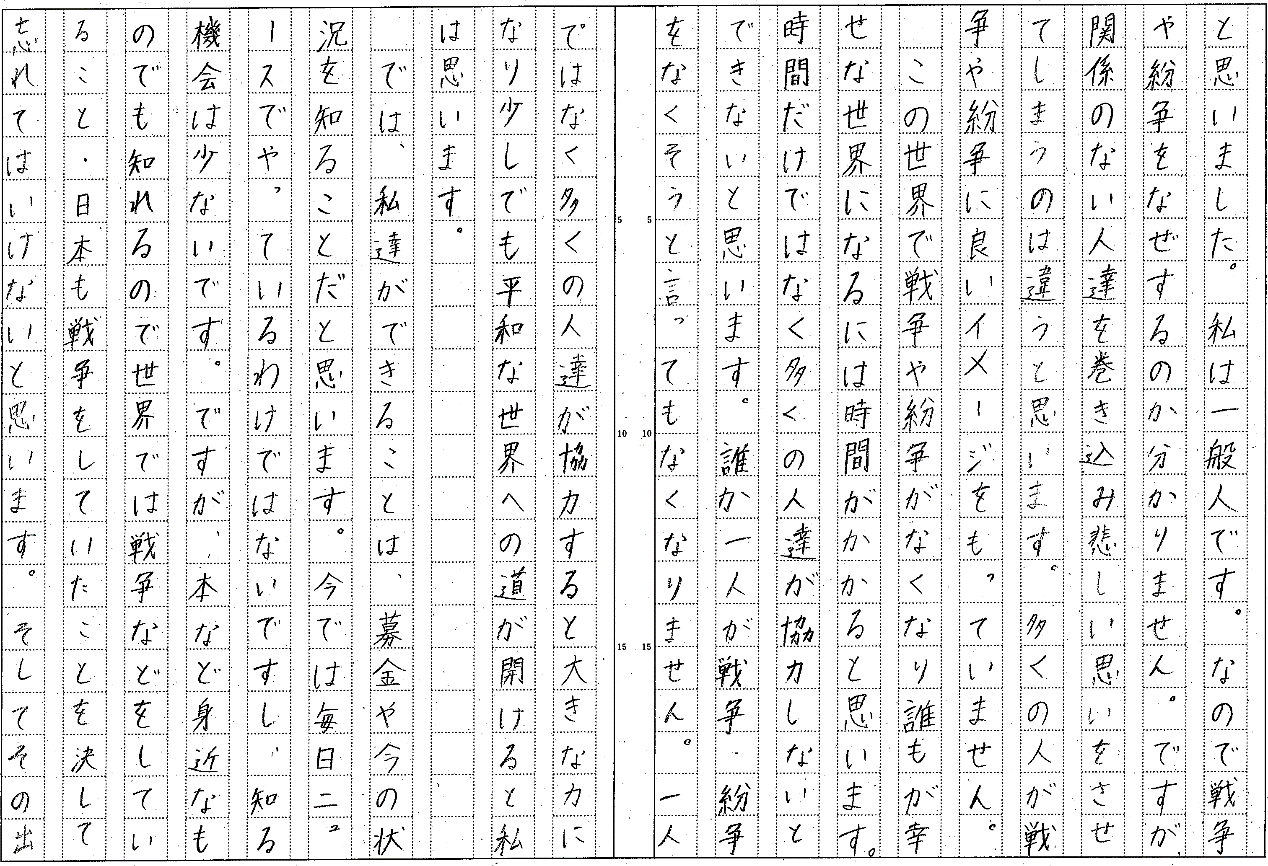 と思いました。私は一般人です。なので戦争
や紛争をなぜするのか分かりません。ですが、
関係のない人達を巻き込み悲しい思いをさせ
てしまうのは違うと思います。多くの人が戦
争や紛争に良いイメージをもっていません。
この世界で戦争や紛争がなくなり誰もが幸
せな世界になるには時間がかかると思います。
時間だけではなく多くの人達が協力しないと
できないと思います。誰か一人が戦争・紛争
をなくそうと言ってもなくなりません。一人
ではなく多くの人達が協力すると大きな力に
なり少しでも平和な世界への道が開けると私
は思います。
では、私達ができることは、募金や今の状
況を知ることだと思います。今では毎日ニュ
ースでやっているわけではないですし、知る
機会は少ないです。ですが、本など身近なも
のでも知れるので世界では戦争などをしてい
ること・日本も戦争をしていたことを決して
忘れてはいけないと思います。そしてその出
5
5
10
10
15
15